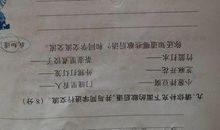 九、请你补充下面的歇后语,并与同学进行交流。(8分)
小葱拌豆腐—— 门缝里看人——
芝麻开花—— 外甥打灯笼——
竹篮打水—— 茶壶里煮饺子——
你还知道哪些歇后语?和同学交流交流
我知道